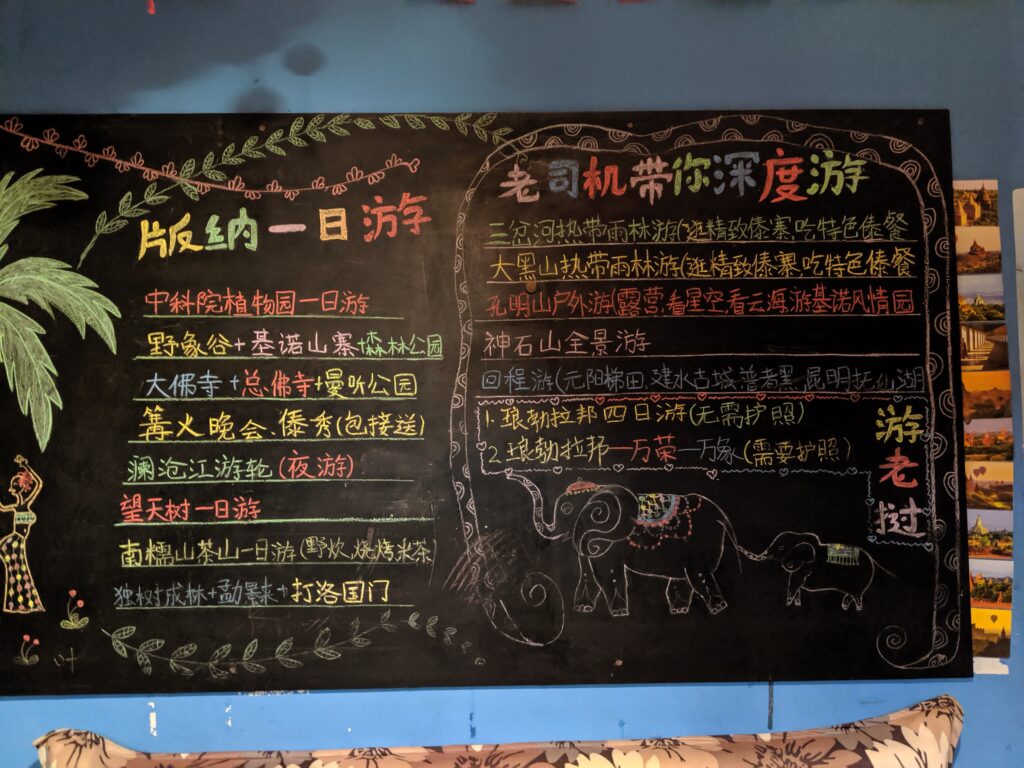 版纳一日游
中科院植物园一日游
野象谷+基诺山寨+森林公园
大佛寺+总佛寺+曼听公园
篝火晚会、傣秀(包接送)
澜沧江游轮(夜游)
望天树一日游
南糯山茶山一日游(野炊、烧烤、采茶)
独树成林+勐景来+打洛国门
老司机带你深度游
三岔河热带雨林游(逛精致傣寨,吃特色傣餐
大黑山热带雨林游(逛精致傣寨,吃特色傣餐
孔明山户外游(露营,看星空,看云海,游基诺风情园
神石山全景游
回程游(元阳梯田,建水古城,普者黑,昆明抚仙湖
1.琅勃拉邦四日游(无需护照)
2.琅勃拉邦一万荣一万象(需要护照)
游老挝